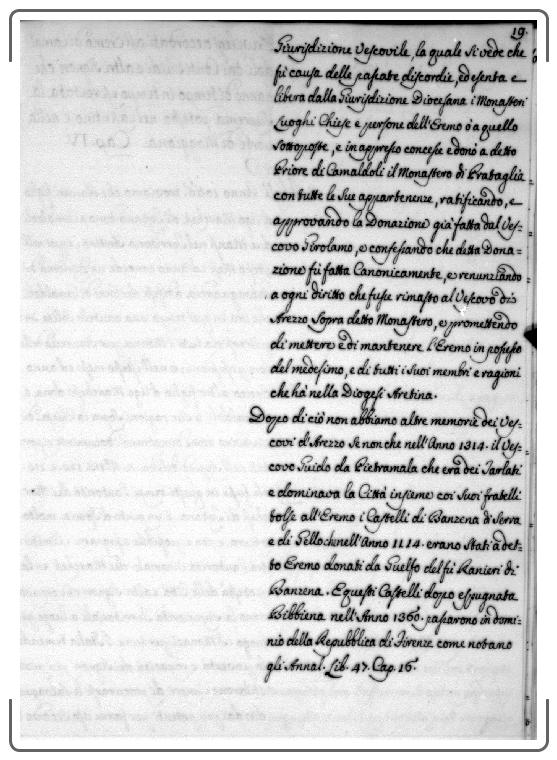 19.
Giurisdizione Vescovile, la quale si vede che
fù causa delle passate discordie, ed esenta e
libera dalla Giurisdizione Diocesana i Monasteri
Luoghi Chiese e persone dell'Eremo ò a quello
sottoposte, e in appresso concese e donò a detto
Priore di Camaldoli il Monastero di Prataglia
con tutte le sue appartenenze, ratificando, e
approvando la Donazione già fatta dal Ves=
covo Girolamo, e confessando che detta Dona=
zione fù fatta Canonicamente, e renunziando
a ogni diritto che fusse rimasto al Vescovo di
Arezzo Sopra detto Monastero, e promettendo
di mettere e di mantenere l'Eremo in possesso
del medesimo, e di tutti i suoi membri e ragioni
che hà nella Diogesi Aretina.
Dopo di ciò non abbiamo altre memorie dei Ves=
covi d'Arezzo se non che nell'Anno 1314. il Ves=
covo Guido da Pietramala che era dei Tarlati
e dominava la Città insieme coi suoi fratelli
tolse all'Eremo i Castelli di Banzena di Serra
e di Gello che nell'Anno 1114. erano stati a det=
to Eremo donati da Guelfo del fù Ranieri di
Banzena. E questi Castelli dopo espugnata
Bibbiena nell'Anno 1360. passarono in domi=
nio della Repubblica di Firenze come notano
gli Annal. Lib. 47. Cap. 16.